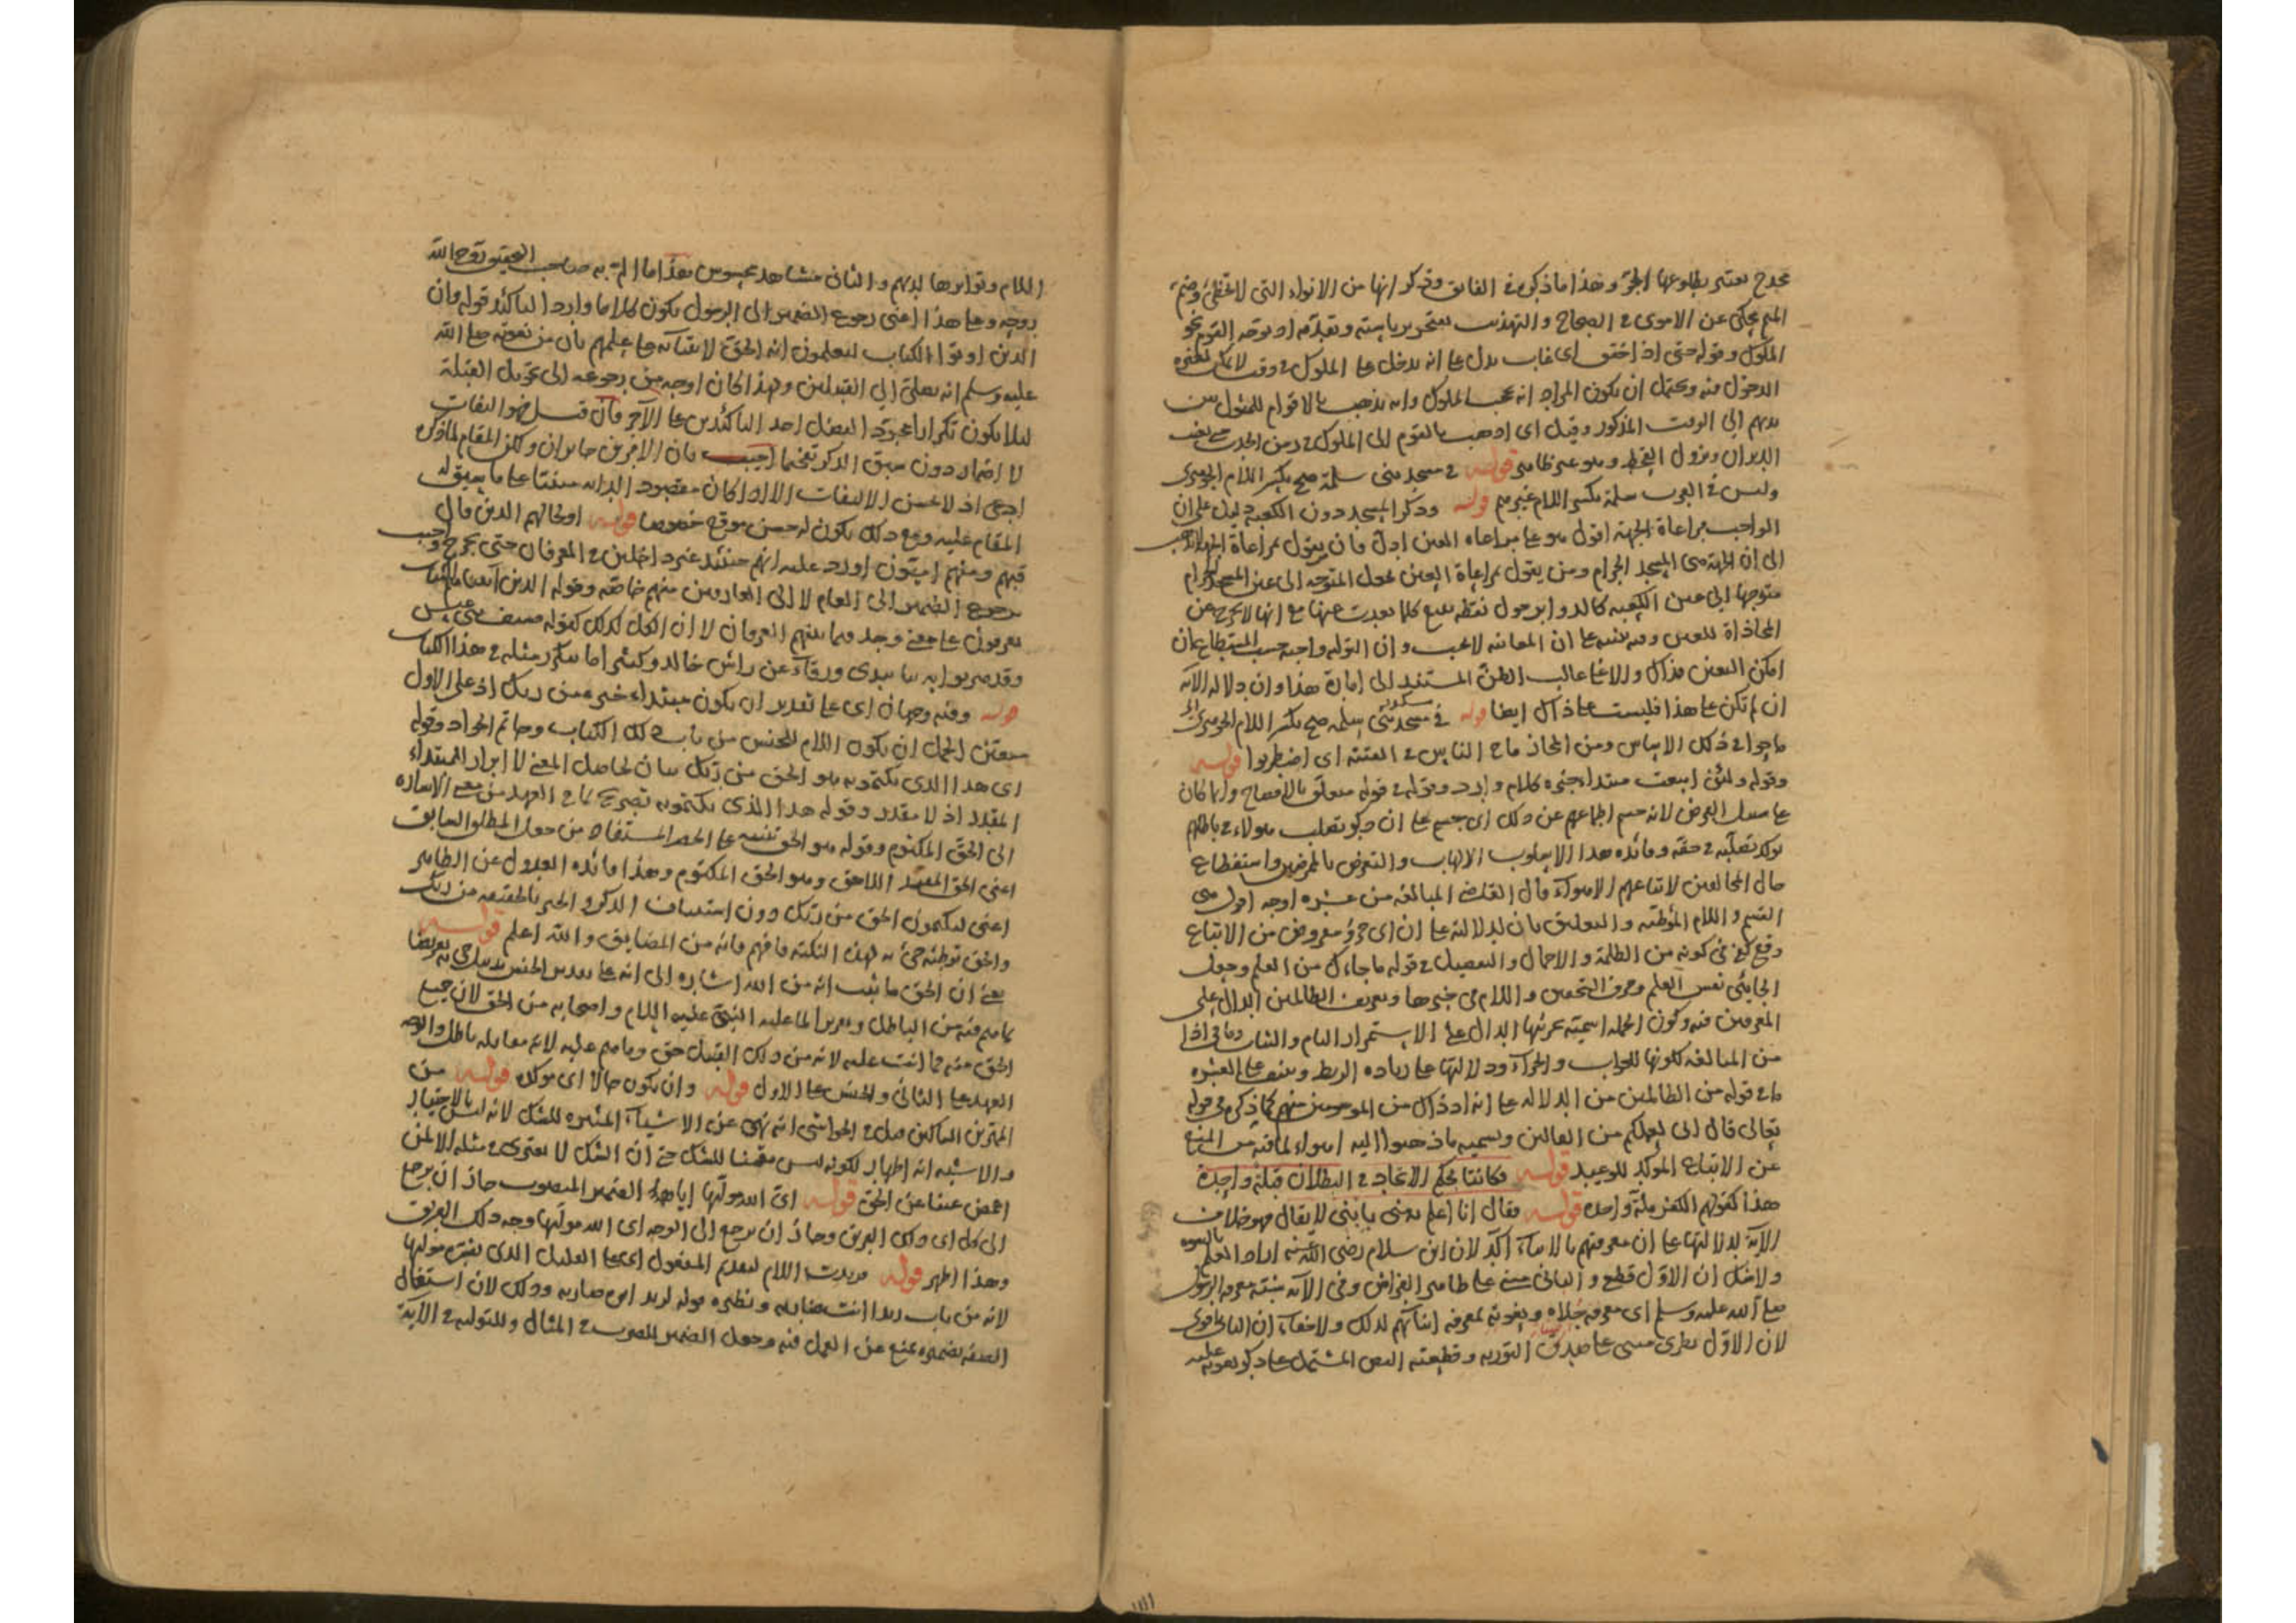 مجدح يعتبر بطلوعها الحر وهذا ما ذكره في الفائق وذكر انها من الانواء التي لا تخطئ وضم
الميم يحكى عن الاموى في الصحاح والتهذيب يعتبر برياسته وتقدمه او يوقد القوم نحو
الملوك وقوله حتى اذا خفق اى غاب يدل على انه يدخل على الملوك في وقت لا يمكن لغيره
الدخول فيه ويحتمل ان يكون المراد انه يحب الملوك وانه يذهب بالاقوام للمثول بين
يديهم الى الوقت المذكور وقيل اى اذهب بالقوم الى الملوك في زمن الجدب حتى يغيب
الدبران ويزول القحط وهو غير ظاهر قوله في مسجد بنى سلمة صح بكسر اللام الجوهرى
وليس في العرب سلمة بكسر اللام غيرهم قوله وذكر المسجد دون الكعبة دليل على ان
الواجب مراعاة الجهة اقول هو على مراعاة العين ادل فان من يقول بمراعاة الجهة ذاهب
الى ان الجهة هى المسجد الحرام ومن يقول بمراعاة العين يجعل المتوجه الى عين المسجد الحرام
متوجها الى عين الكعبة كالدوائر حول نقطة تتسع كلما بعدت عنها مع انها لا تخرج عن
المحاذاة للعين وفيه تنبيه على ان المعاينة لا تجب وان التولية واجبة حسب المستطاع ان
امكن اليقين فذاك والا فما غالب الظن المستند الى امارة هذا وان دلالة الآية
ان لم تكن على هذا فليست على ذاك ايضا قوله في مسجد بنى سلمة صح بكسر اللام الجوهرى
ماجوا في ذلك الاساس ومن المجاز ماج الناس في الفتنة اى اضطربوا قوله
وقوله ولئن اتبعت مبتدا خبره كلام وارد وقوله في قوله متعلق بالافصاح وانما كان
على سبيل الفرض لانه حسم اطماعهم عن ذلك اى جسم على ان ذكر تصلب هؤلاء في باطلهم
يؤكد تصلبه في حقه وفائدة هذا الاسلوب الالهاب والتعرض بالمعرضين واستفظاع
حال المخالفين لاتباعهم الاهواء قال القاضى المبالغة من عشرة اوجه اولى هى
القسم واللام الموطئة والتعليق بان لدلالته على ان اى جزؤ مفروض من الاتباع
وقع كفى في كونه من الظلمة والاجمال والتفصيل في قوله ما جاءك من العلم وجعل
الجائى نفس العلم وحرف التحقيق واللام في خبرها وتعريف الظالمين الدال على
المعرفين فيه وكون الجملة اسمية بجزئيها الدال على الاستمرار التام والثبات وما في اذا
من المبالغة لكونها للجواب والجزاء ودلالتها على زيادة الربط وينيف على العشرة
ما في قوله من الظالمين من الدلالة على انه اذ ذاك من الموسومين منهم كما ذكره في قوله
تعالى قال انى لعملكم من القالين وتسميته ما ذهبوا اليه اهواء لما فيه من المنع
عن الاتباع المؤكد للوعيد قوله فكانتا بحكم الاتحاد في البطلان قبلة واحدة
هذا كقولهم الكفر ملة واحدة قوله فقال انا اعلم به منى بابنى لا يقال فهو خلاف
الآية لدلالتها على ان معرفتهم بالابناء آكد لان ابن سلام رضى الله عنه اراد العلم بالنبوة
ولا شك ان الاول قطع والثانى مبنى على ظاهر الفراش وفي الآية شبه معرفة الرسول
صلى الله عليه وسلم اى معرفة جلاه ونعوته بمعرفة ابنائهم لذلك ولا خفاء ان الثانى اقوى
لان الاول نظرى مبنى على صدق التورية وقطعية النص المشتمل على ذكر نعوته عليه
السلام وتواترها لديهم والثانى مشاهد محسوس هذا ما الم به صاحب التحقيق روح الله
روحه وعلى هذا اعنى رجوع الضمير الى الرسول يكون كلاما واردا لتاكيد قوله وان
الذين اوتوا الكتاب ليعلمون انه الحق لابتنائه على علمهم بان من نعوته صلى الله
عليه وسلم انه يصلى الى القبلتين ولهذا كان اوجه من رجوعه الى تحويل القبلة
لئلا يكون تكرارا مجردا لفضل احد التاكيدين على الآخر فان قيل هو التفات
لا اضمار دون سبق الذكر تفخيما اجيب بان الامرين جائزان ولكن المقام لما ذكره
ادعى اذ لا يحسن الالتفات الا اذا كان مقصودا لذاته مبتنيا على ما سيق له
المقام عليه ومع ذلك يكون له حسن موقع خصوصا قوله او لجهالهم الذين قال
فيهم ومنهم اميون اورد عليه انهم حينئذ غير داخلين في العرفان حتى يخرج واجيب
برجوع الضمير الى العام لا الى العارفين منهم خاصة وقوله الذين آتيناهم الكتاب
يعرفون على معنى وجد فيما بينهم العرفان لا ان الكل كذلك كقوله فسيف بنى عبس
وقد ضربوا به نبا بيدى ورقاء عن راس خالد وكثيرا ما يتكرر مثله في هذا الكتاب
قوله وفيه وجهان اى على تقدير ان يكون مبتداء خبره من ربك اذ على الاول
يتعين الحمل ان يكون اللام للجنس من باب ذلك الكتاب وحاتم الجواد وقوله
اى هذا الذى يكتمونه هو الحق من ربك بيان لحاصل المعنى لا ابراز المبتداء
المقدر اذ لا مقدر وقوله هذا الذى يكتمونه تصريح بما في العهد من معنى الاشارة
الى الحق المكتوم وقوله هو الحق تنبيه على الحصر المستفاد من حمل المطلق السابق
اعنى الحق المقيد اللاحق وهو الحق المكتوم وهذا فائدة العدول عن الظاهر
اعنى ليكتمون الحق من ربك دون استيناف الذكر والخبر بالحقيقة من ربك
والحق توطئة جئ به لهذه النكتة فافهم فانه من المضايق والله اعلم قوله
يعنى ان الحق ما ثبت انه من الله اشارة الى انه على تقدير الجنس تذييل جئ به تعريضا
بما هم فيه من الباطل وتعزيرا لما عليه النبى عليه السلام واصحابه من الحق لان جميع
الحق منه مما انت عليه لانه من ذلك القبيل حق وما هم عليه لانه مقابله باطل والوجه
العهد على الثانى والجنس على الاول قوله وان يكون حالا اى مؤكدة قوله من
الممترين الشاكين قيل في الحواشى انه نهى عن الاشياء المثيرة للشك لانه ليس بالاختيار
والاشبه انه اظهار لكونه ليس مظنة للشك حتى ان الشك لا يعترى في مثله الا لمن
اغمض عينا عن الحق قوله اى الله موليها اياه الضمير المنصوب جاز ان يرجع
الى كل اى ذلك الفريق وجاز ان يرجع الى الوجه اى الله موليها وجه ذلك الفريق
وهذا اظهر قوله فزيدت اللام لتقدم المفعول اى على العامل الذى يفسره موليها
لانه من باب زيدا انت ضاربه ونظيره قوله لزيد ابوه ضاربه وذلك لان اشتغال
الصفة بضميره يمنع عن العمل فيه وجعل الضمير للضرب في المثال وللتولية في الآية